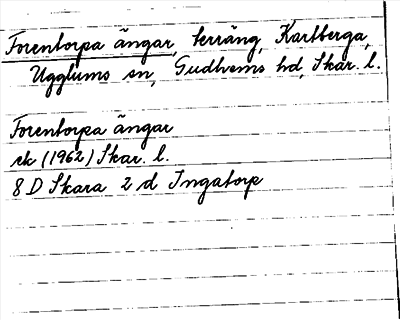 Torentorpa ängar, terräng, Karlberga,
Ugglums sn, Gudhems hd, Skar. l.
Torentorpa ängar
ek (1962) Skar. l.
8 D Skara 2 d Ingatorp